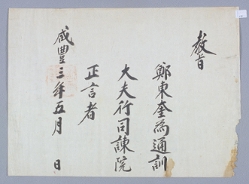 敎旨
鄭東奎爲通訓
大夫行司諫院
正言者
咸豐三年五月　日